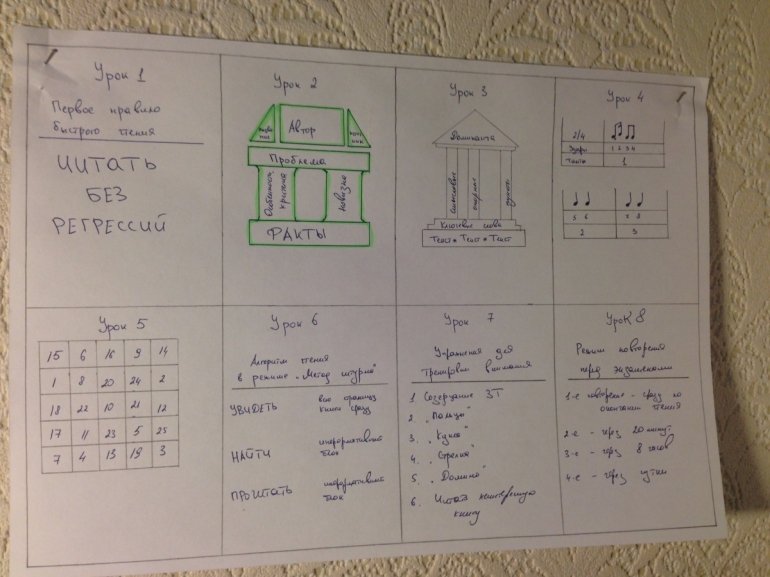 Урок 1
Первое правило
быстрого чтения
ЧИТАТЬ
БЕЗ
РЕГРЕССИЙ
Урок 2
Автор
Проблема
Особенности
критика
Новизна
ФАКТЫ
Урок 3
Доминанта
смысловые
опорные
пункты
Ключевые слова
Текст • Текст • Текст
Урок 4
2/4
Удары
1 2 3 4
Такты
1
5 6
7 8
2
3
Урок 5
15 6 16 9 14
1 8 20 24 2
18 22 10 21 12
17 11 23 5 25
7 4 13 19 3
Урок 6
Алгоритм чтения
в режиме „Метод штурма"
УВИДЕТЬ
всю страницу
книги сразу
НАЙТИ
информативный
блок
ПРОЧИТАТЬ
информативный
блок
Урок 7
Упражнения для
тренировки внимания
1 Созерцание ЗТ
2. „Пальцы"
3. „Кукла"
4. „Стрелка"
5. „Домино"
6. Читаю
книгу
Урок 8
Режим повторения
перед экзаменами
1-е повторение - сразу по
окончании чтения
2-е - через 20 минут
3-е - через 8 часов
4-е - через сутки